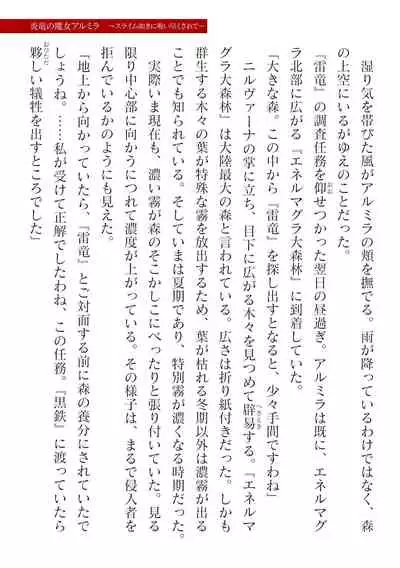 炎竜の魔女アルミラ　～スライム如きに吸い尽くされて～
湿り気を帯びた風がアルミラの頬を撫でる。雨が降っているわけではなく、森
の上空にいるがゆえのことだった。
『雷竜』の調査任務を仰せつかった翌日の昼過ぎ。アルミラは既に、エネルマグ
ラ北部に広がる『エネルマグラ大森林』に到着していた。
「大きな森。この中から『雷竜』を探し出すとなると、少々手間ですわね」
ニルヴァーナの掌に立ち、目下に広がる木々を見つめて辟易する。『エネルマ
グラ大森林』は大陸最大の森と言われている。広さは折り紙付きだった。しかも
群生する木々の葉が特殊な霧を放出するため、葉が枯れる冬期以外は濃霧が出る
ことでも知られている。そしていまは夏期であり、特別霧が濃くなる時期だった。
実際いま現在も、濃い霧が森のそこかしこにべったりと張り付いていた。見る
限り中心部に向かうにつれて濃度が上がっている。その様子は、まるで侵入者を
拒んでいるかのようにも見えた。
「地上から向かっていたら、『雷竜』とご対面する前に森の養分にされていたで
しょうね。……私が受けて正解でしたわね、この任務。『黒鉄』に渡っていたら
夥しい犠牲を出すところでした」